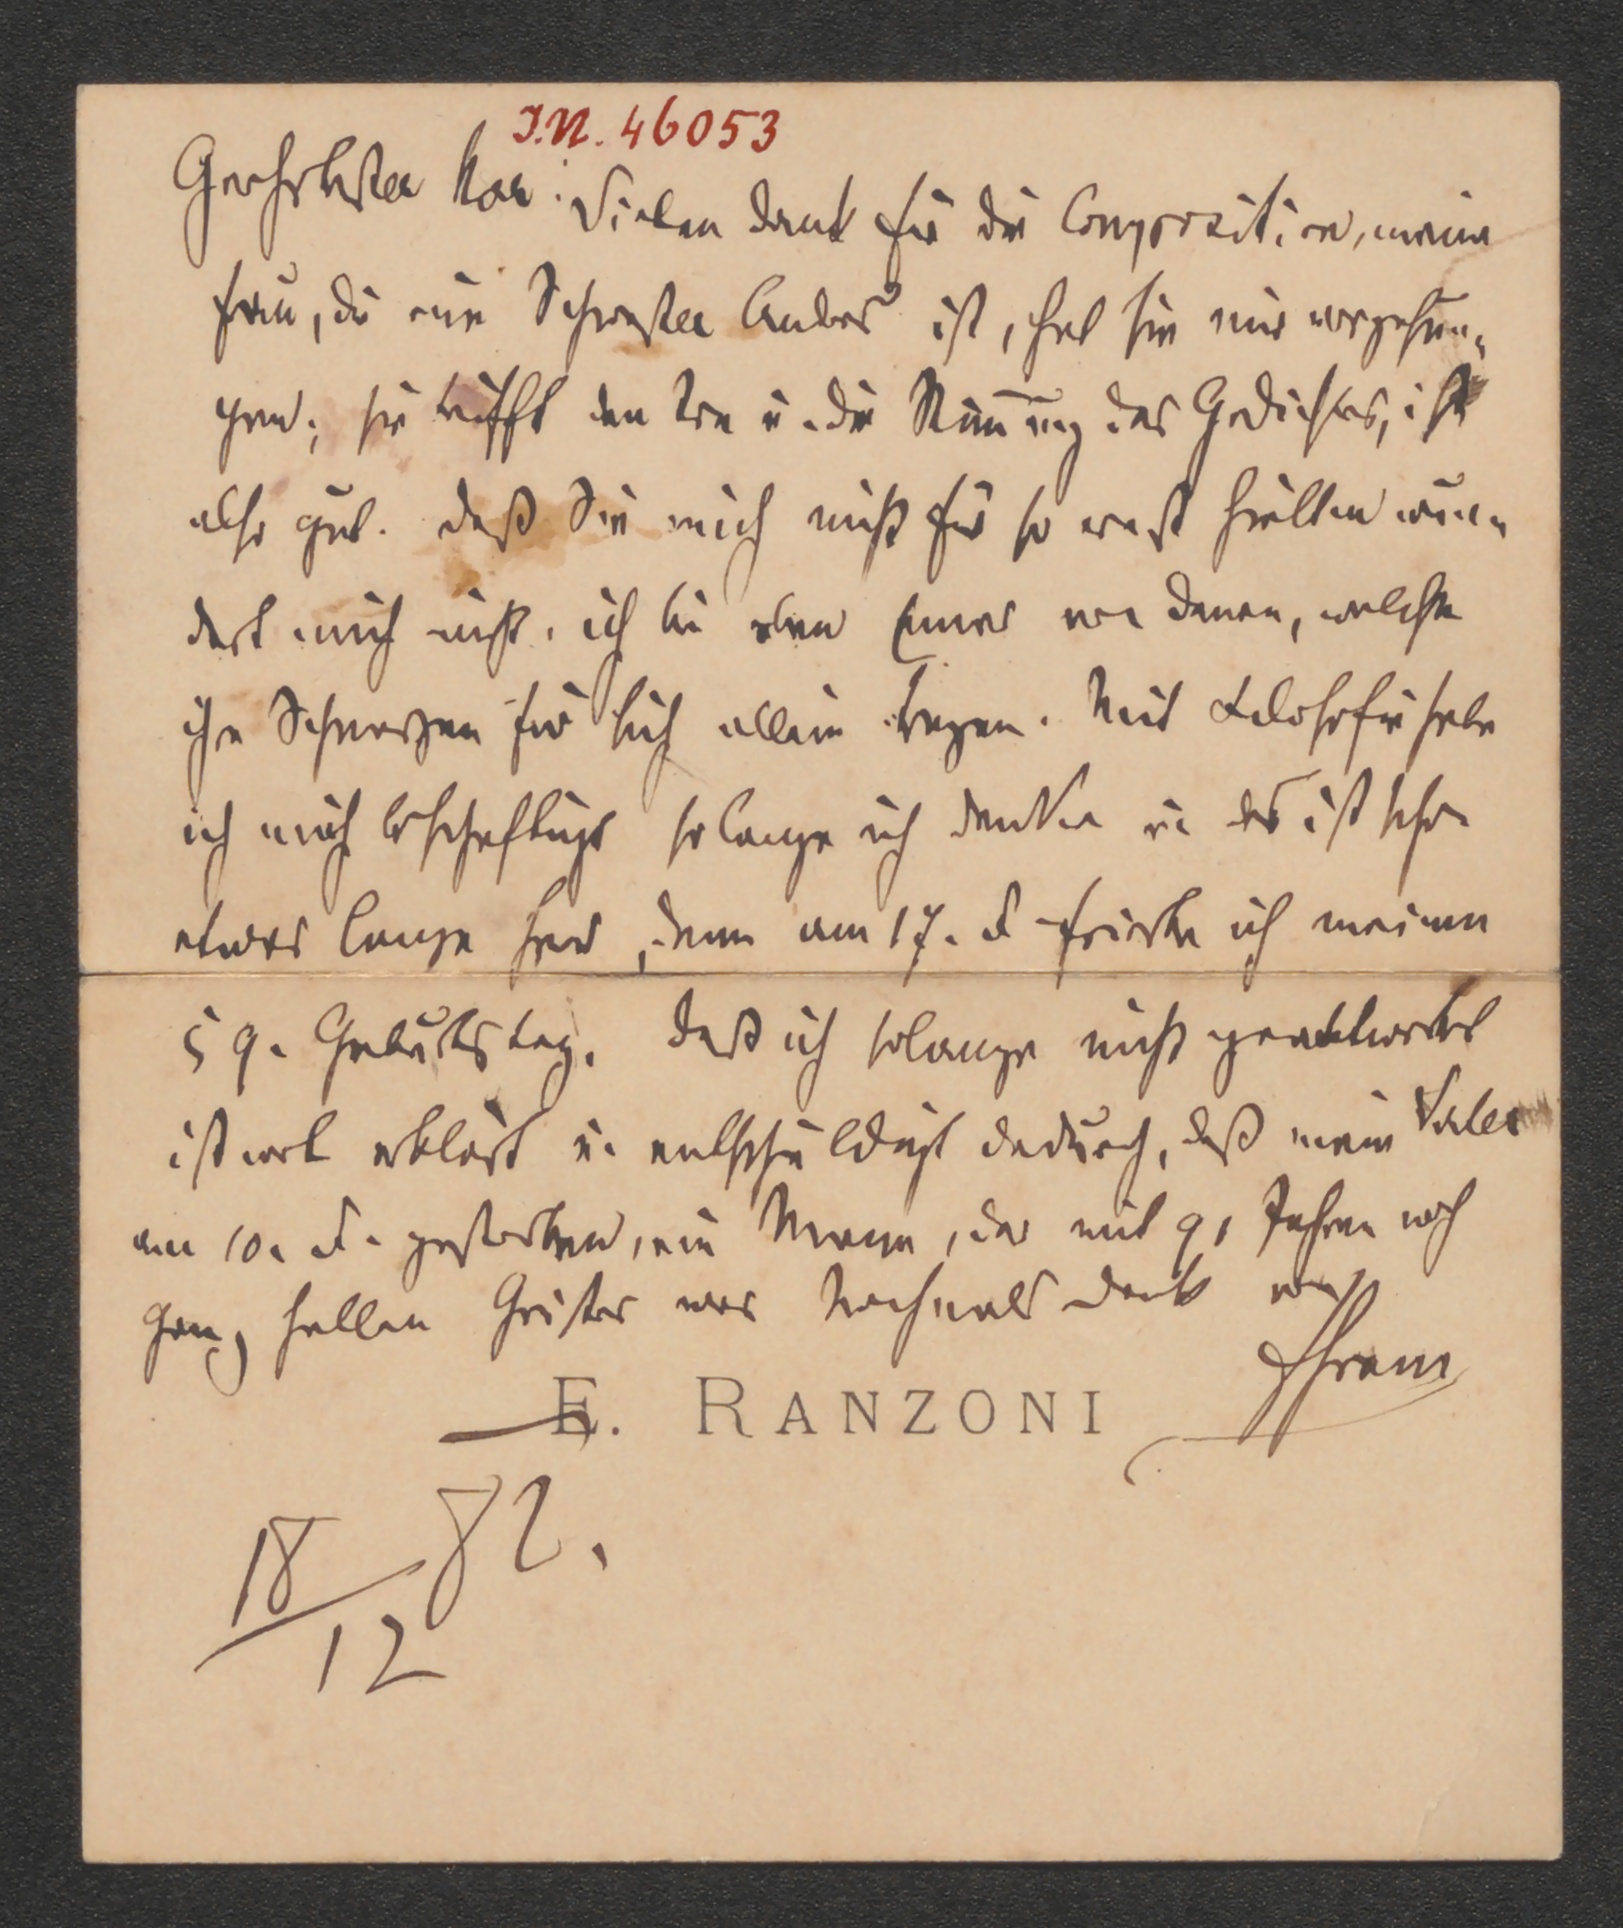 I.N. 46053
Geehrtester Herr! Vielen Dank für die Composition, meine
Frau, die eine Schwester Anders ist, hat sie mir vorgesun-
gen; sie trifft den Ton u. die Stimmung des Gedichtes, ist
also gut. Daß Sie mich nicht für so ernst hielten wun-
dert mich nicht. ich bin eben Einer von denen, welche
ihre Schmerzen für sich allein tragen. Mit Filosofie habe
ich mich beschaftigt solange ich denke u. das ist schon
etwas lange her, denn am 17. d. feierte ich meinen
59. Geburtstag. Daß ich solange nicht geantwortet
ist wol erklärt u. entschuldigt dadurch, daß mein Vater
am 10. d. gestorben, ein Mann, der mit 91 Jahren noch
ganz hellen Geistes war Nochmals Dank von
Ihrem
E. RANZONI
18/12 82.